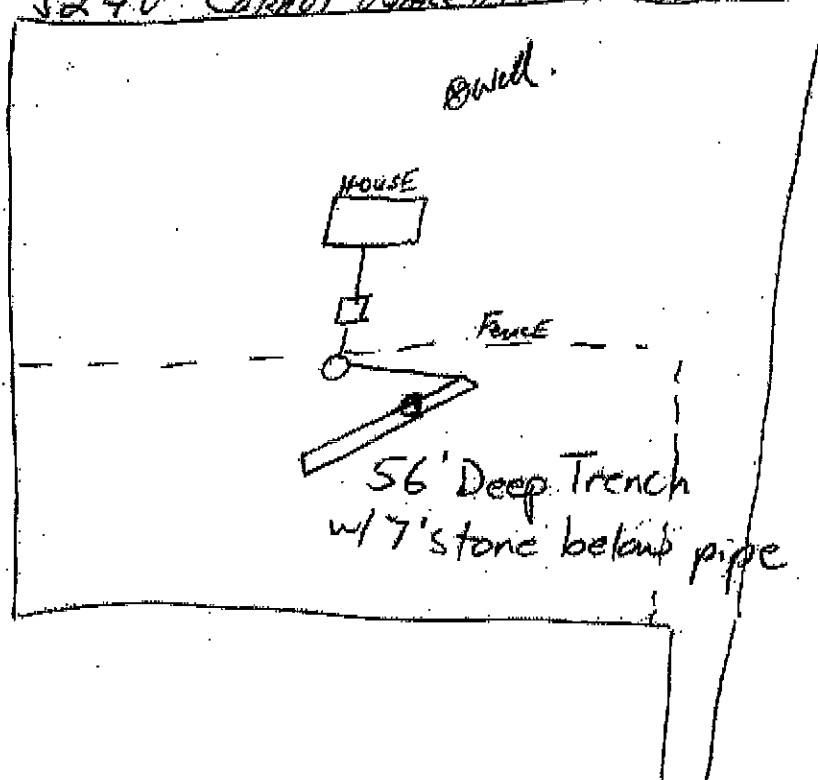 well.
HOUSE
FENCE
56' Deep Trench
w/ 7' stone below pipe